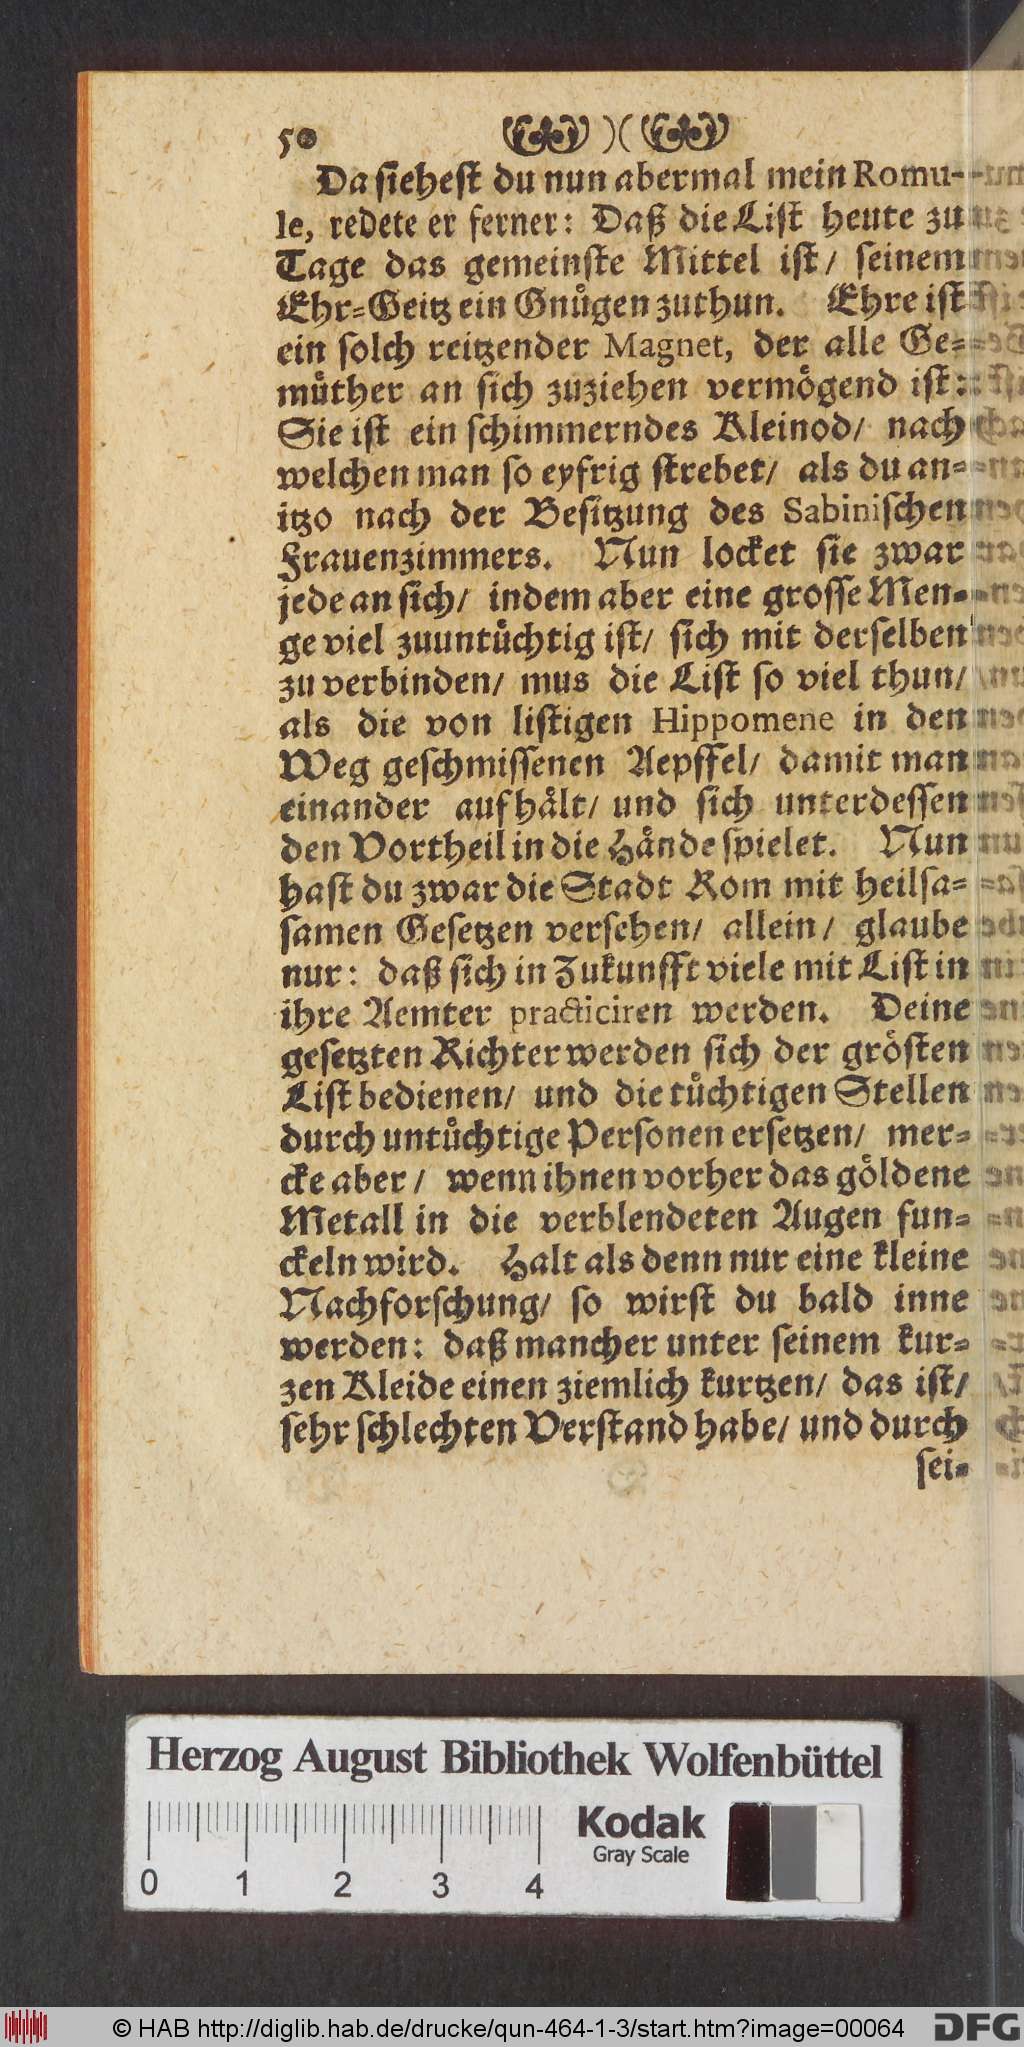 50 )(
Da siehest du nun abermal mein Romu-
le, redete er ferner: Daß die List heute zu
Tage das gemeinste Mittel ist/ seinem
Ehr-Geitz ein Gnügen zuthun. Ehre ist
ein solch reitzender Magnet, der alle Ge-
müther an sich zuziehen vermögend ist:
Sie ist ein schimmerndes Kleinod/ nach
welchen man so eyfrig strebet/ als du an-
itzo nach der Besitzung des Sabinischen
Frauenzimmers. Nun locket sie zwar
jede an sich/ indem aber eine grosse Men-
ge viel zuuntüchtig ist/ sich mit derselben
zu verbinden/ mus die List so viel thun/
als die von listigen Hippomene in den
Weg geschmissenen Aepffel/ damit man
einander aufhält/ und sich unterdessen
den Vortheil in die Hände spielet. Nun
hast du zwar die Stadt Rom mit heilsa-
samen Gesetzen versehen/ allein/ glaube
nur: daß sich in Zukunfft viele mit List in
ihre Aemter practiciren werden. Deine
gesetzten Richter werden sich der grösten
List bedienen/ und die tüchtigen Stellen
durch untüchtige Personen ersetzen/ mer-
cke aber/ wenn ihnen vorher das göldene
Metall in die verblendeten Augen fun-
ckeln wird. Halt als denn nur eine kleine
Nachforschung/ so wirst du bald inne
werden: daß mancher unter seinem kur-
zen Kleide einen ziemlich kurtzen/ das ist/
sehr schlechten Verstand habe/ und durch
sei-
Herzog August Bibliothek Wolfenbüttel
0 1 2 3 4
Kodak
Gray Scale
© HAB http://diglib.hab.de/drucke/qun-464-1-3/start.htm?image=00064
DFG